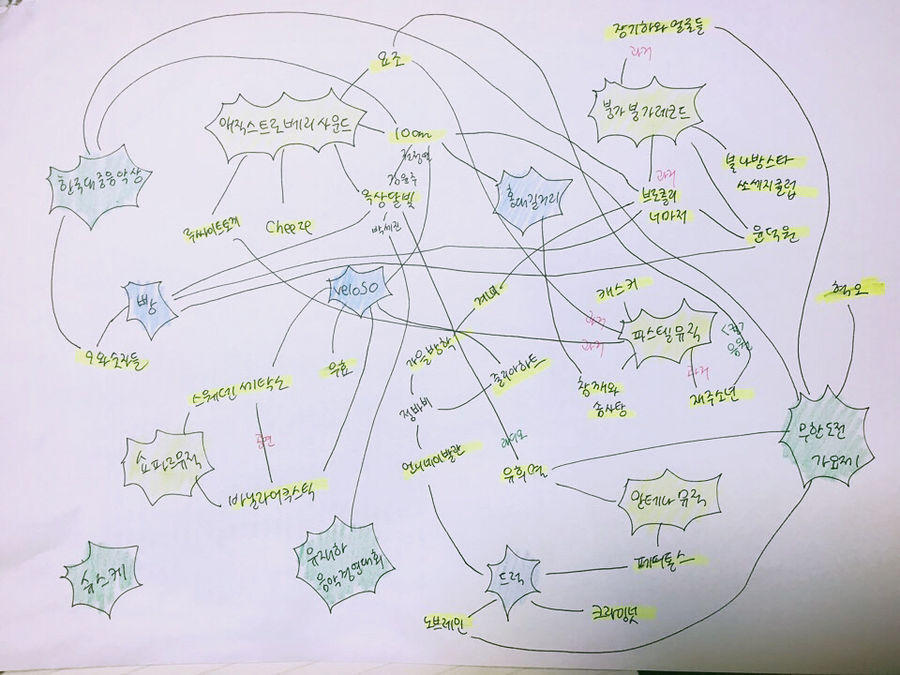 장기하와 얼굴들
과거
요조
붕가붕가레코드
매직스트로베리사운드
10cm
권정열
불나방스타
쏘세지클럽
한국대중음악상
윤철종
과거
브로콜리
너마저
옥상달빛
홍대길거리
루싸이트토끼
Cheeze
박세진
윤덕원
빵
veloso
계피
캐스커
혁오
과거
과거
파스텔뮤직
9와숫자들
가을방학
우효
줄리아하트
짙은
스웨덴세탁소
정바비
참깨와
솜사탕
과거
재주소년
쇼파르뮤직
공연
언니네이발관
라디오
유희열
무한도전
가요제
바닐라어쿠스틱
안테나 뮤직
유재하
음악경연대회
페퍼톤스
슈스케
드럭
노브레인
크라잉넛